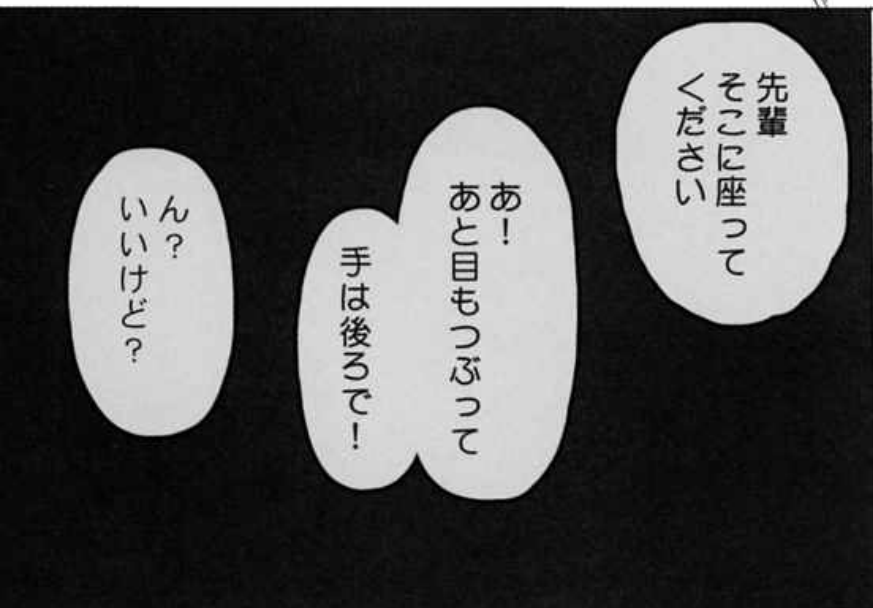 先輩
そこに座って
ください
あ！
あと目もつぶって
手は後ろで！
ん？
いいけど？